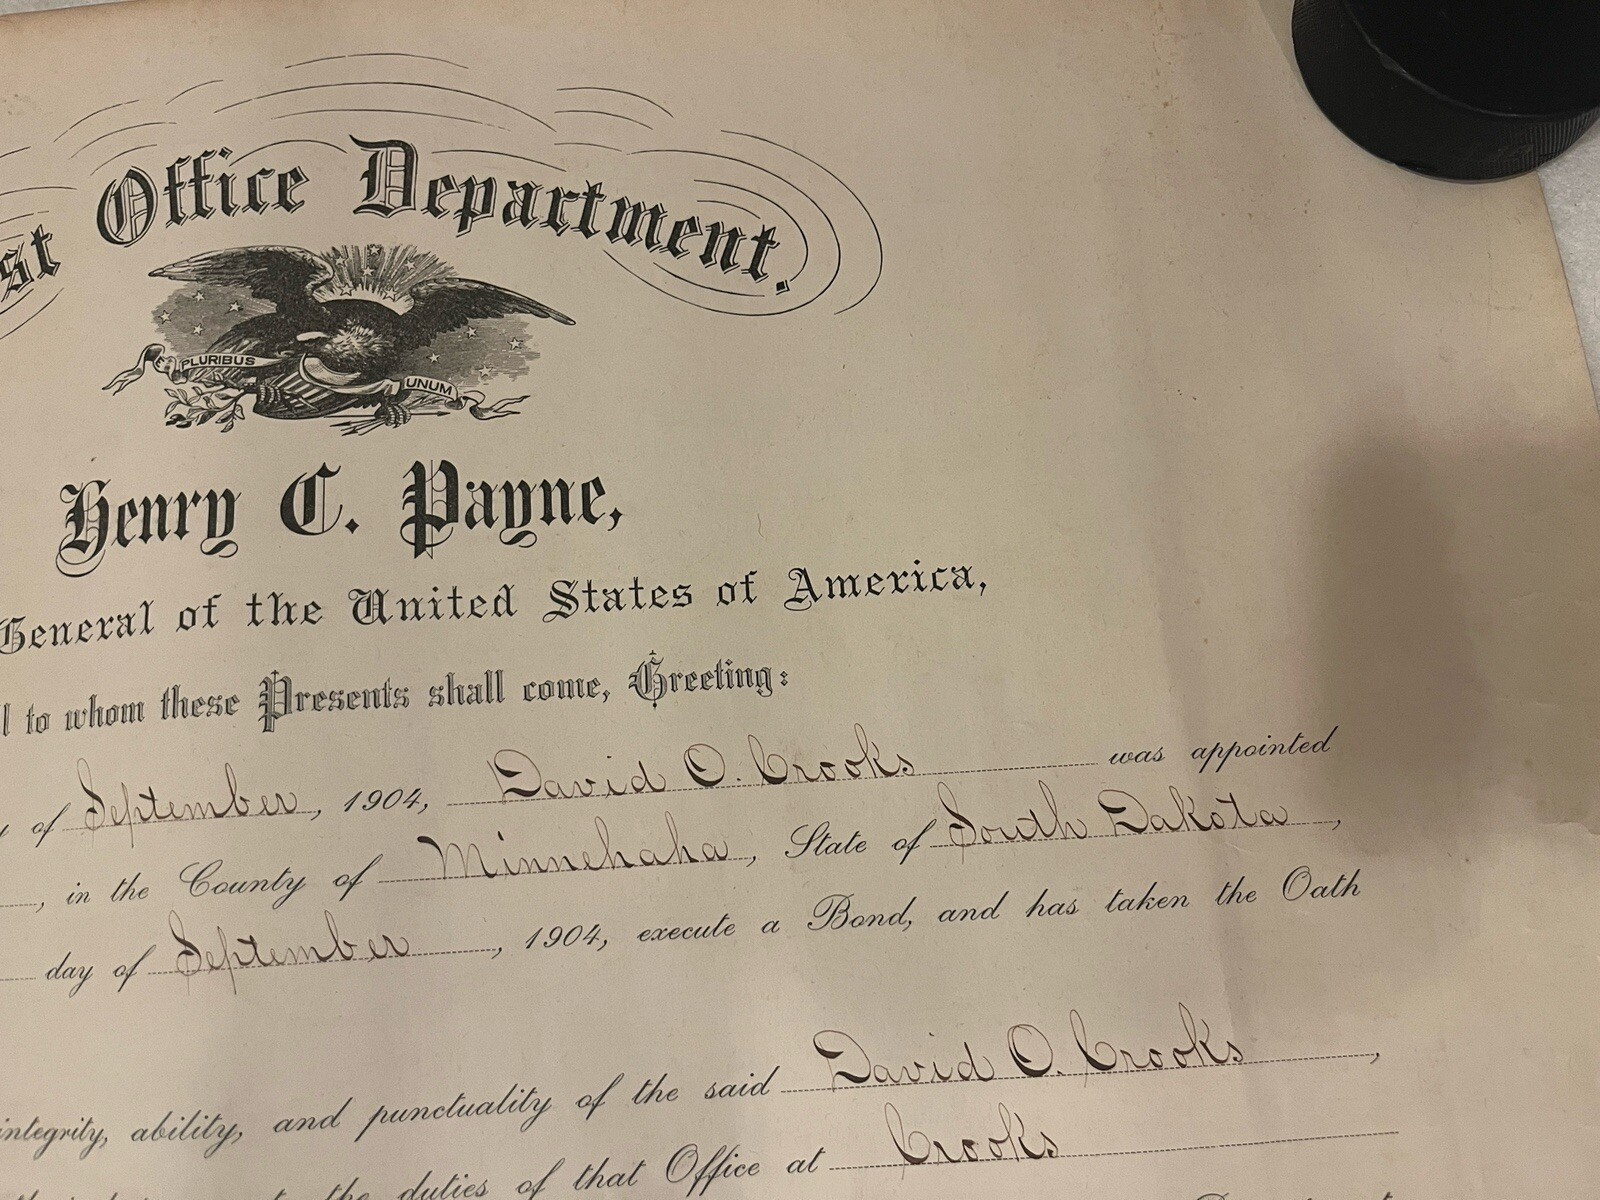 st Office Department.
PLURIBUS UNUM
Henry C. Payne,
General of the United States of America,
l to whom these Presents shall come, Greeting:
of September, 1904, David O. Crooks was appointed
, in the County of Minnehaha, State of South Dakota,
day of September, 1904, execute a Bond, and has taken the Oath
integrity, ability, and punctuality of the said David O. Crooks,
the duties of that Office at Crooks